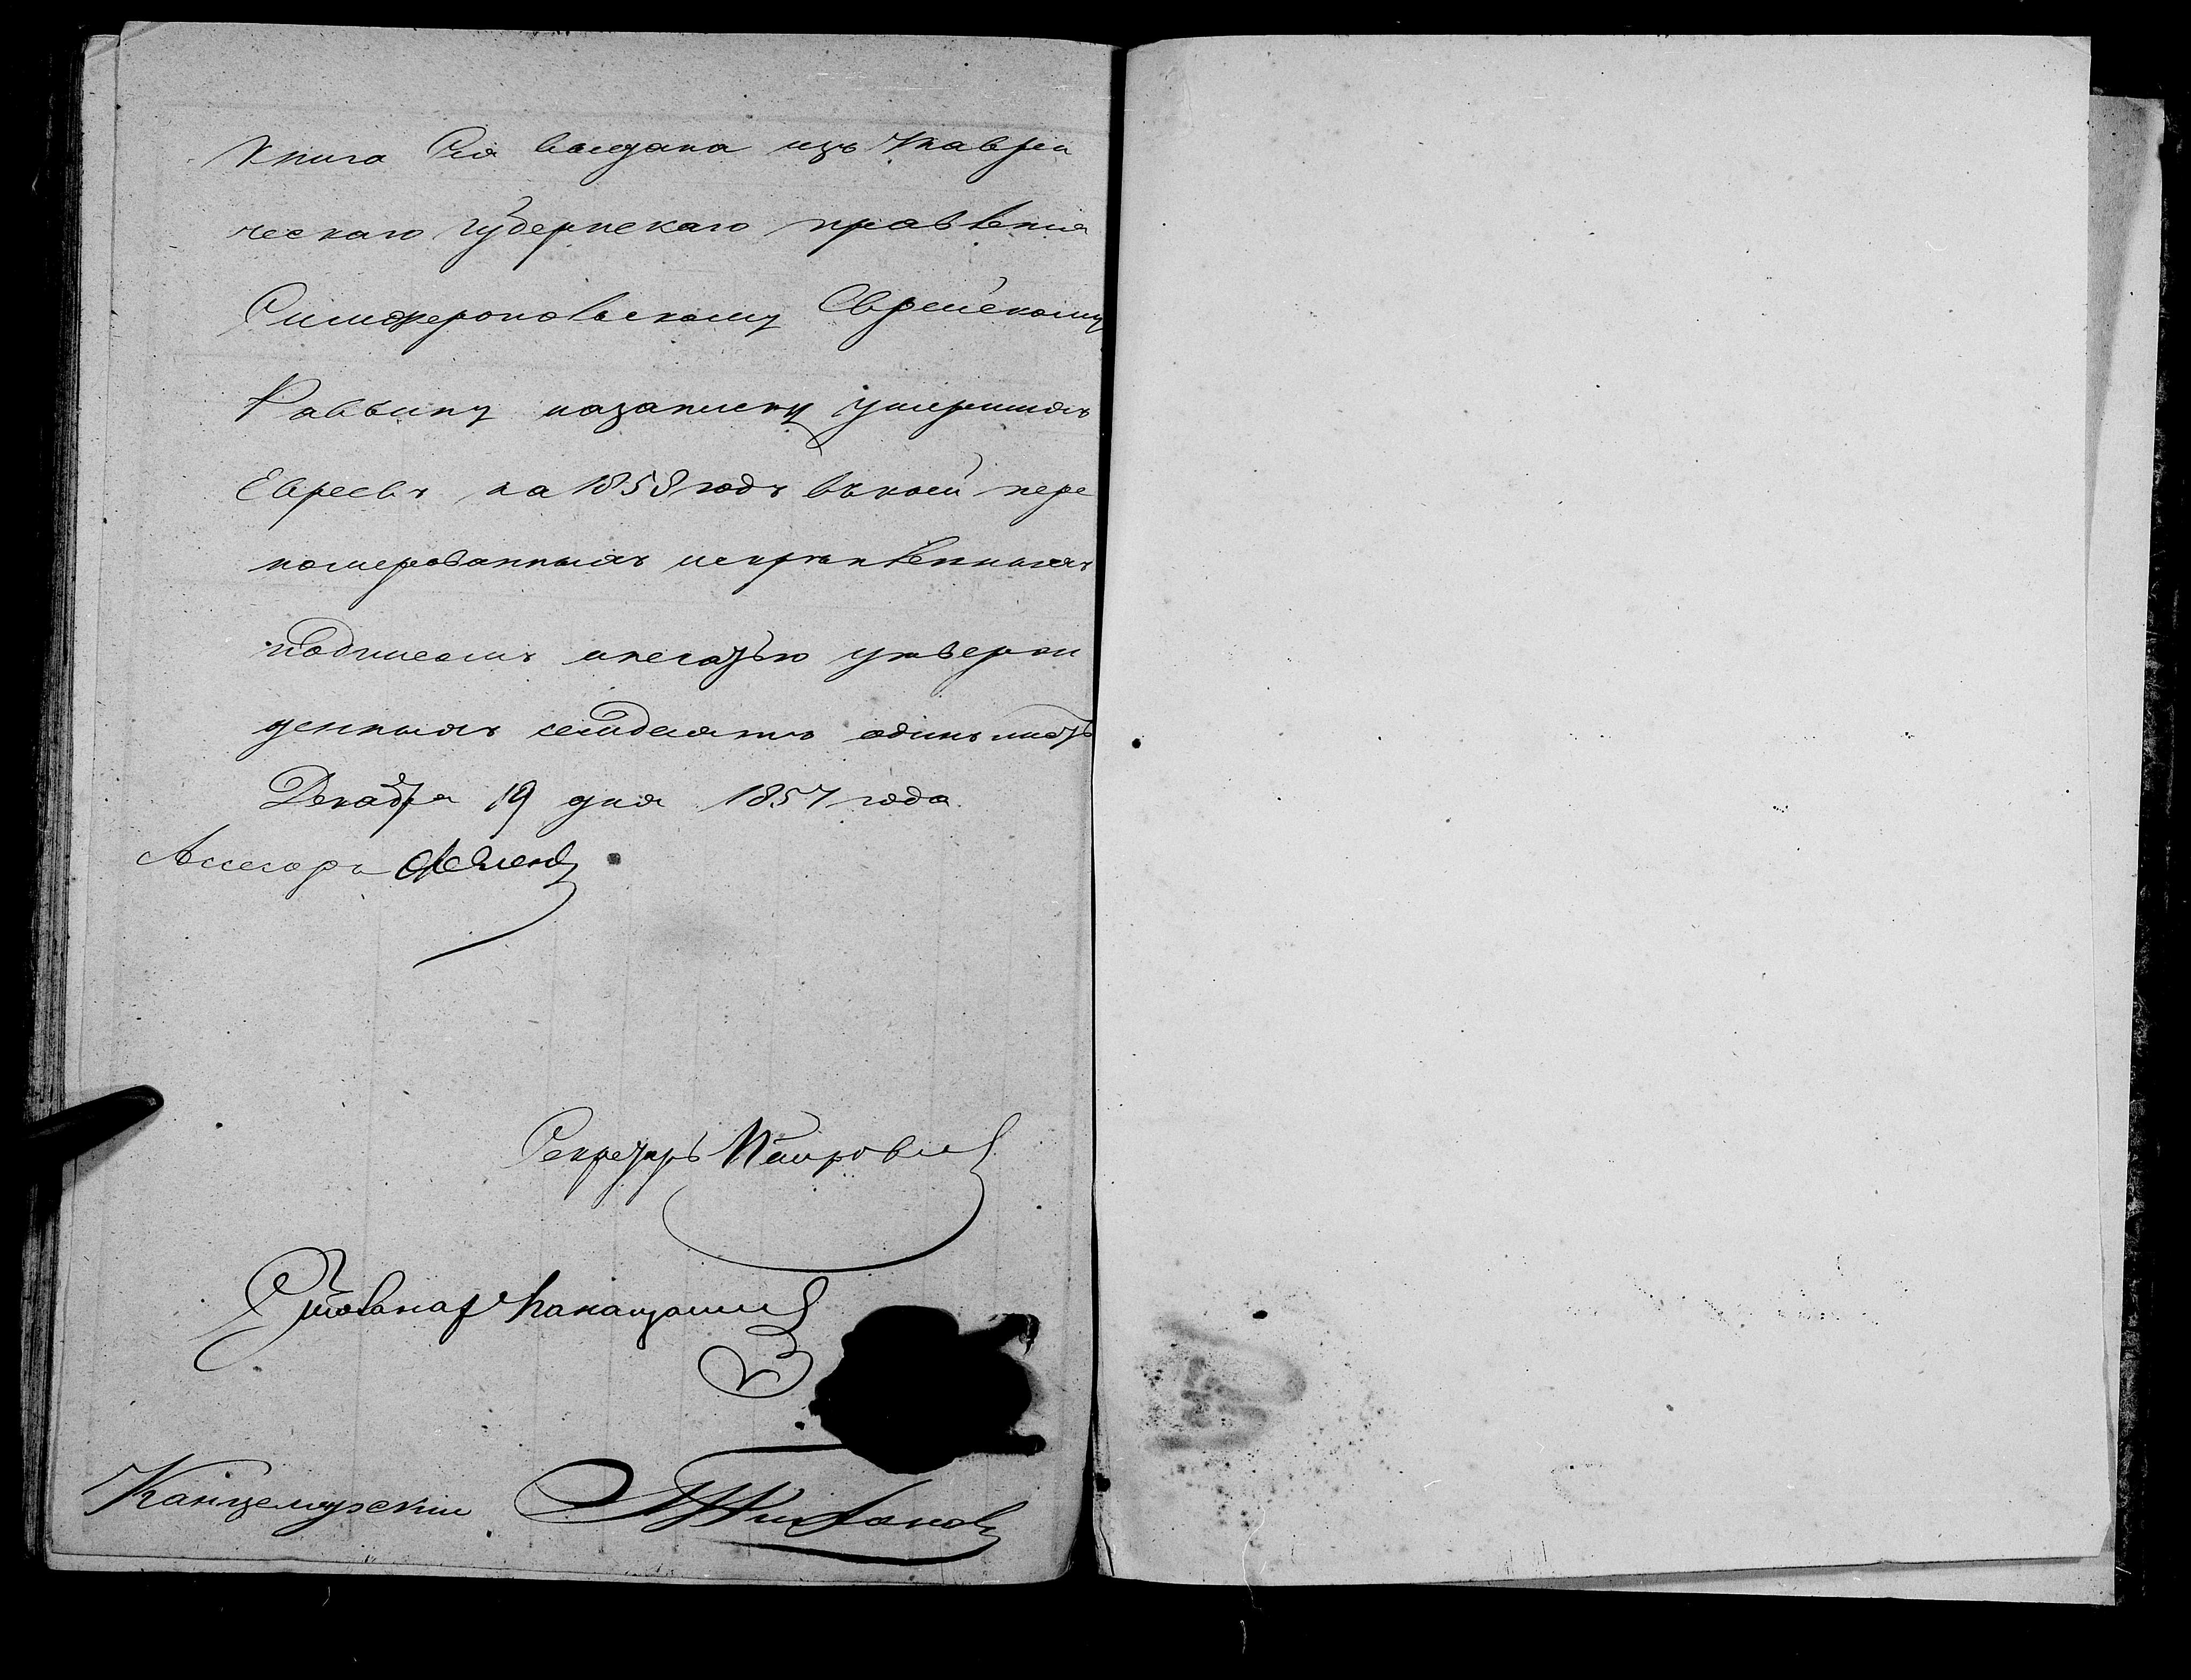 Книга Сія выдана изъ Таври
ческаго губернскаго правленія
Симферопольскому Еврейскому
Раввину назаписку умершихъ
Евреевъ на 1858 годъ въ коей пере
номерованныхъ искрѣпленныхъ
подписомъ ипечатью утверж
денныхъ семдесятъ одинъ листъ
Декабря 19 дня 1857 года
Ассесоръ
Секретарь
Канцелярскій